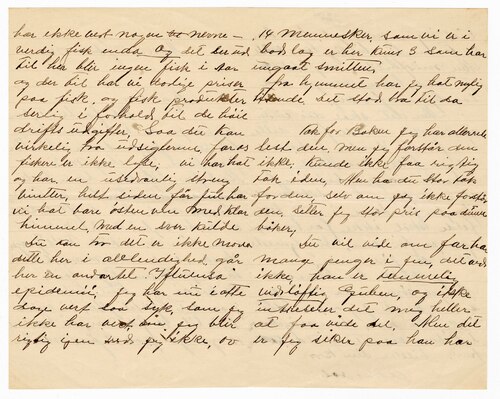 har ikke vært nogen to nevne —
verdig fisk enda og det ser ud
til her blir ingen fisk i aar
og der til har vi daarlige priser
paa fisk, og fisk produkter
særlig i forhold til de høie
drifts udgifter, Saa det kan
virkelig udsigterne for os
fiskere er ikke lyse, vi har hat
og har en usedvanlig streng
vinter, helt siden før jul har
vi hat bare østenvin med klar
himmel, med en svær kulde
Du kan tro det er ikke moro
dette her i all elendighed, går
her en ondartet "Influensa"
epidemi, jeg har nu i otte
dage vert saa syk, som jeg
ikke har vert før, jeg blir
rigtig igen ved jeg ikke, av
14 Mennesker, som vi er i
hos lag er her kuns 3 som har
undgaat smitten,
fra hjemmet har jeg hat nylig
det stod bra til da
Tak for Boken jeg har allerede
lest den, men jeg forstår den
ikke, kunde ikke faa rigtig
tak i den, Men ha du stor tak
for den, selv om jeg ikke forstår
den, setter jeg stor pris paa dine
bøker,
Du vil vide om far har
mange penger i fra, det ved
ikke, han er temmelig
vidløftig, og ikke
intreserer det mig heller
at faa vide det, Men det
er jeg sikker paa han har